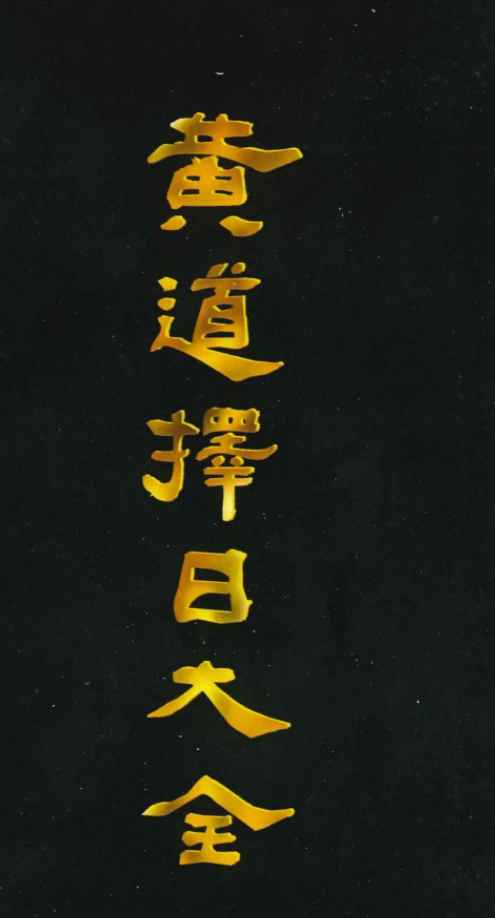 黃道擇日大全